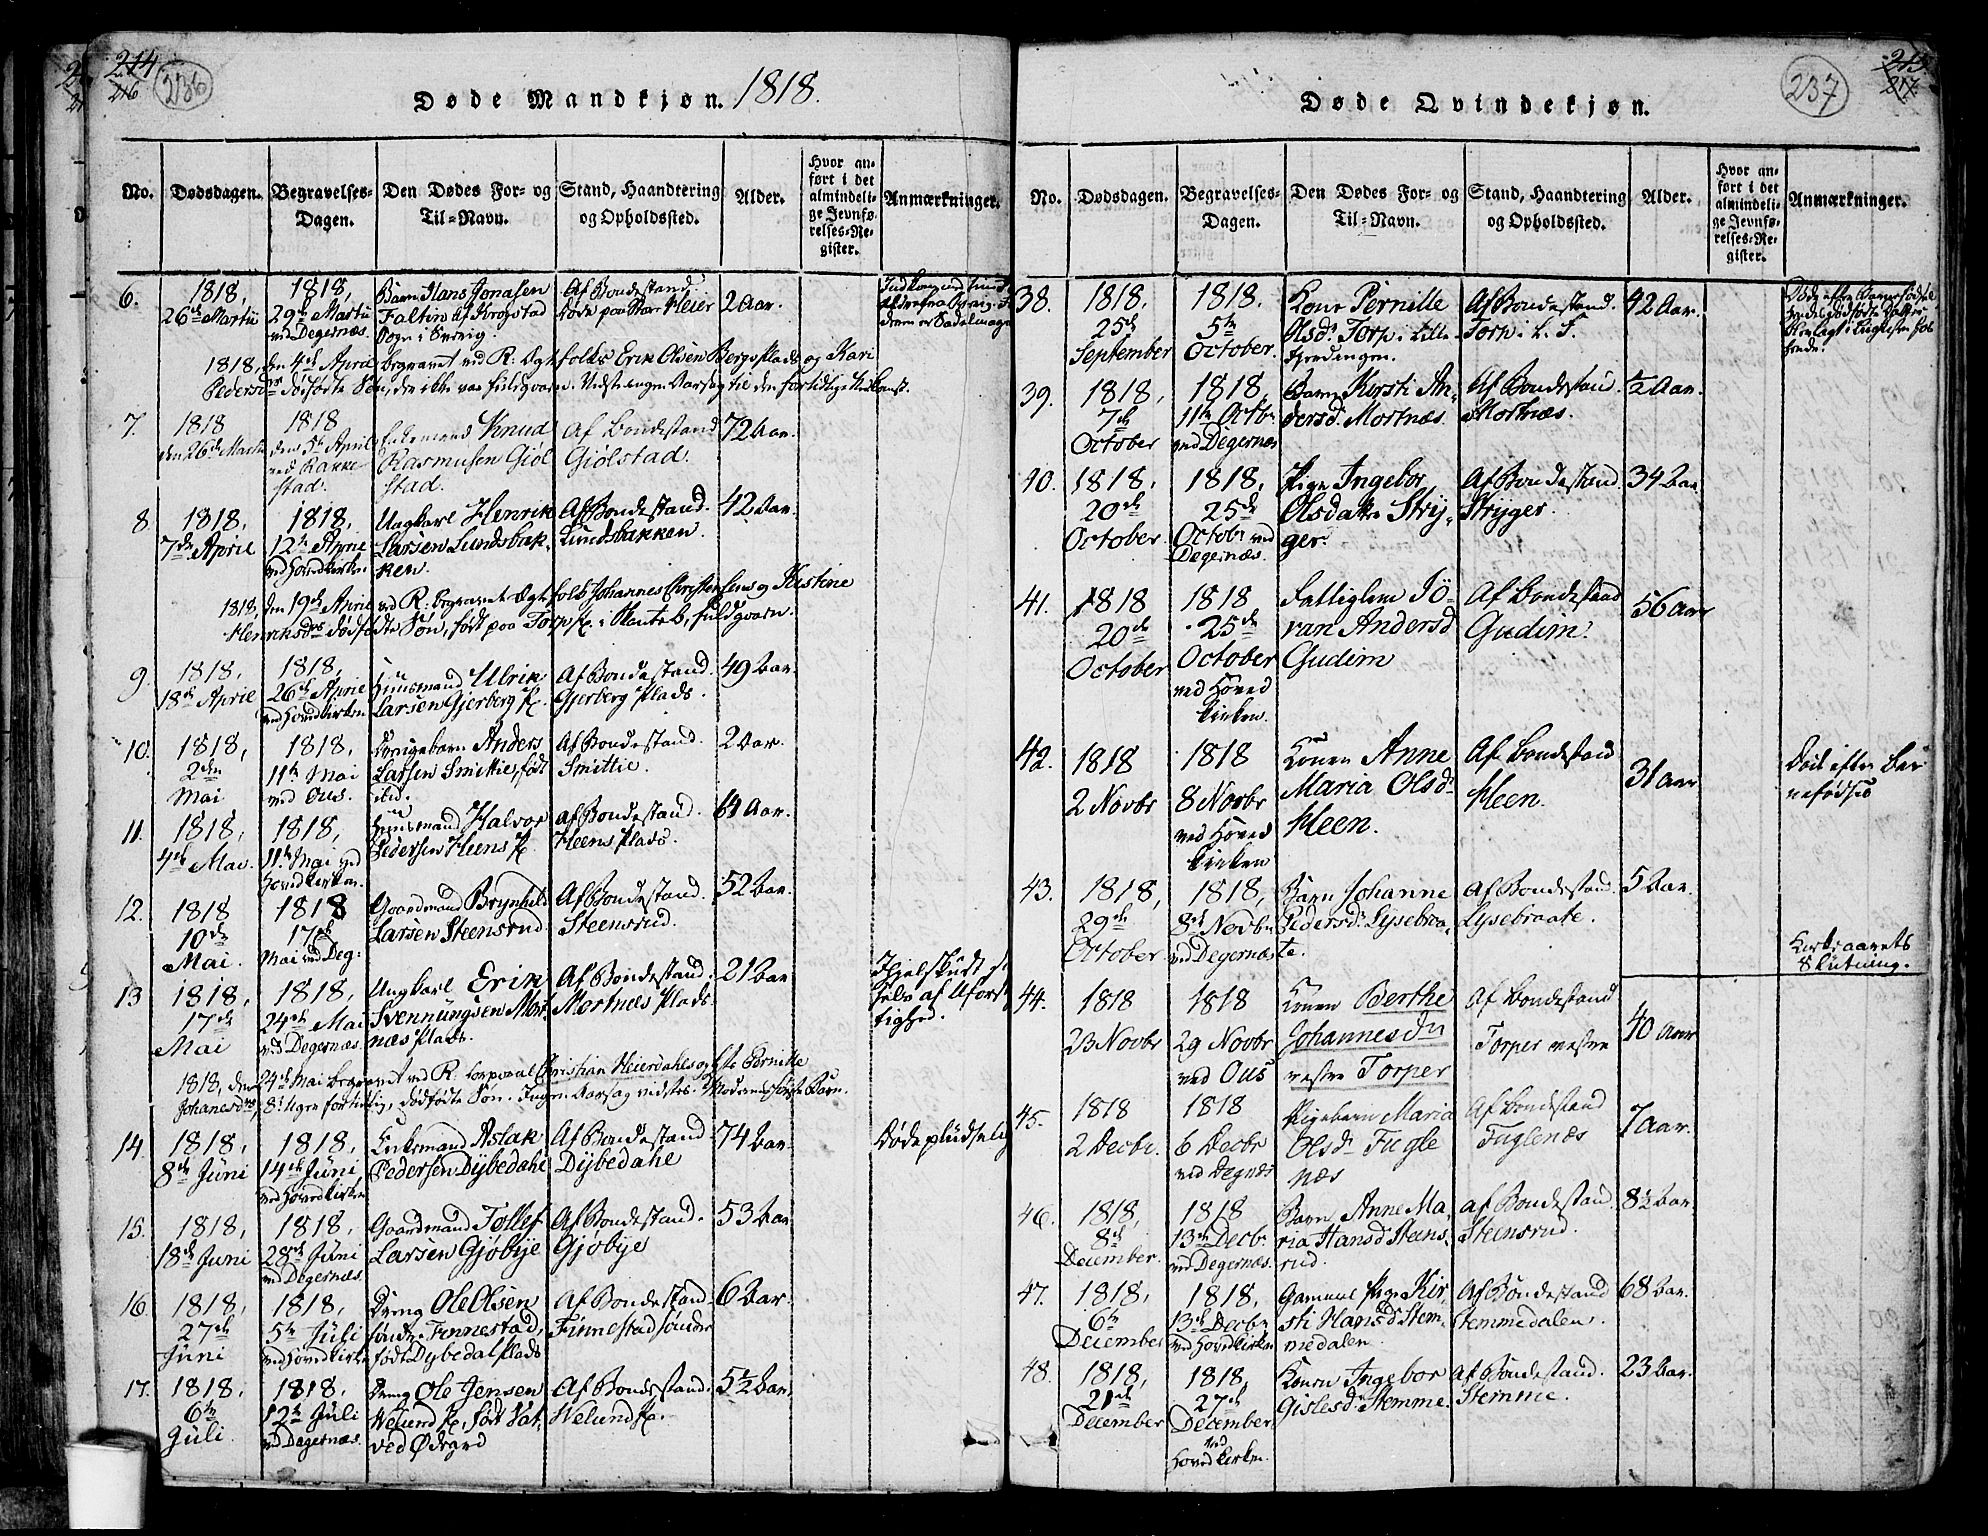 214
216
236
Døde Mandkjøn. 1818.
No.
Dødsdagen.
Begravelses-
Dagen.
Den Dødes For- og
Til-Navn.
Stand, Haandtering
og Opholdssted.
Alder.
Hvor an-
ført i det
almindeli-
ge Jevnfø-
relses-Re-
gister.
Anmærkninger.
6.
1818,
26de Martii
1818,
29de Martii
ved Degernæs.
Barn Hans Jonasen
Faltin af Krogstad
Sogn i Sverig.
Af Bondestand.
2 Aar.
1818, den 4de April begravet ved R: Ægtefolks Erik Olsen Bergs Plads og Kari
Pedersdrs dødfødte Søn, der ikke var fuldgaaren.
7.
1818
den 26de Martii
1818
den 5te April
ved Rakke
stad.
Enkemand Knud
Rasmusen Giøl
stad.
Af Bondestand
Giölstad.
72 Aar.
8.
1818,
7de April
1818,
12te April
ved Hovedkirken
Ungkarl Henrik
Larsen Lundsbak-
ken.
Af Bondestand.
Lundsbakken.
42 Aar.
1818, den 19de April ved R: begravet Ægtefolk Johannes Christensens og Kistine
Henriksdrs dødfødte Søn, født paa Torp Pl. i Skanteb, fuldgaaren.
9.
1818,
18de April
1818,
26de April
ved Hovedkirken
Huusmand Ulrik
Larsen Gjerberg Pl.
Af Bondestand.
Gjerberg Plads.
49 Aar.
10.
1818,
2den
Mai
1818,
11te Mai
ved Ous.
Drengebarn Anders
Larsen Smittie, født
ibid.
Af Bondestand.
Smittie.
2 Aar.
11.
1818,
4de Mai.
1818,
11te Mai ved
Hovedkirken.
Huusmand Halvor
Pedersen Heens Pl.
Af Bondestand.
Heens Plads.
64 Aar.
12.
1818
10de
Mai.
1818
17de
Mai ved Deg:
Gaardmand Brynhild
Larsen Steensrud.
Af Bondestand.
Steensrud.
52 Aar.
13
1818,
17de
Mai
1818,
24de Mai
ved Degernæs.
Ungkarl Erik
Svennungsen Mort-
næs Plads.
Af Bondestand.
Mortnæs Plads.
21 Aar
Ihjelskudt sig
selv af Ufors
tighed.
1818, den 24de Mai begravet ved R. Corporal Christian Heierdahls og Pernille
Johanesdrs, 8 Uger fortidlig, dødfødte Søn. Ingen Aarsag vidstes. Moderens første Barn.
14.
1818,
8de Juni
1818,
14de Juni
ved Hovedkirken
Enkemand Aslak
Pedersen Dybedahl
Af Bondestand
Dybedahl
74 Aar.
Døde pludselig
15.
1818,
18de Juni
1818,
28de Juni
ved Degernæs.
Gaardmand Tollef
Larsen Gjøbye
Af Bondestand.
Gjøbye
53 Aar
16
1818,
27de
Juni
1818,
5te Juli
ved Hovedkirken
Dreng Ole Olsen
søndre Finnestad,
født Dybedal Plads
Af Bondestand.
Finnestad søndre
6 Aar.
17.
1818,
6te
Juli
1818,
12te Juli
ved Degernæs.
Dreng Ole Jensen
Welund Pl, født Sat,
ved Ødegrd
Af Bondestand.
Welund Pl.
5½ Aar.
237
215
217
Døde Qvindekjøn.
No.
Dødsdagen.
Begravelses-
Dagen.
Den Dødes For- og
Til-Navn.
Stand, Haandtering
og Opholdssted.
Alder.
Hvor an-
ført i det
almindeli-
ge Jevnfø-
relses-Re-
gister.
Anmærkninger.
38.
1818,
25de
September
1818,
5te
October.
Kone Pernille
Olsdr Torp. Lille
Fjerdingen.
Af Bondestand.
Torp. L. F.
42 Aar.
39.
1818,
7de
October
1818,
11te Octbr
ved Degernæs
Barn Kirsti An-
dersdr Mortnæs.
Af Bondestand
Mortnæs.
½ Aar
40.
1818,
20de
October.
1818,
25de
Octobr ved
Degernæs.
Pige Ingebor
Olsdatter Stry-
ger.
Af Bondestand.
Stryger.
34 Aar
41.
1818
20de
October
1818
25de
October
ved Hoved
kirken.
Fattiglem Jö-
ran Andersd
Gudim
Af Bondestand
Gudim.
56 Aar
42.
1818
2 Novbr
1818
8 Novbr
ved Hoved
kirken
Konen Anne
Maria Olsdr
Heen.
Af Bondestand
Heen.
31 Aar
Död efter Bar
nefødsel
43.
1818,
29de
October
1818,
8de Novbr
ved Degernæs
Barn Johanne
Pedersdr Lysebraa-
te.
Af Bondestand.
Lysebraate.
5 Aar.
Kirkeaarets
Slutning.
44.
1818
23 Novbr
1818
29 Novbr
ved Ous
Konen Berthe
Johannesdr
vestre Torper
Af Bondestand
Torper vestre
40 Aar
45.
1818
2 Decbr.
1818
6 Decbr
ved Degnæs
Pigebarn Maria
Olsdr Fugle
næs
Af Bondestand
Fuglenæs
7 Aar.
46.
1818,
8de
December.
1818
13de Decbr
ved Degernæs.
Barn Anne Ma-
ria Hansd Steens-
rud.
Af Bondestand.
Steensrud.
8½ Aar
47.
1818,
6te
December
1818,
13de Decbr
ved Hovedkirken
Gammel Pige Kir-
sti Hansd Stem-
medalen.
Af Bondestand
Stemmedalen.
68 Aar.
48.
1818,
21de
December
1818,
27de
December
ved
Hovedkirken.
Konen Ingebor
Gislesdr Stemme.
Af Bondestand.
Stemme.
23 Aar.